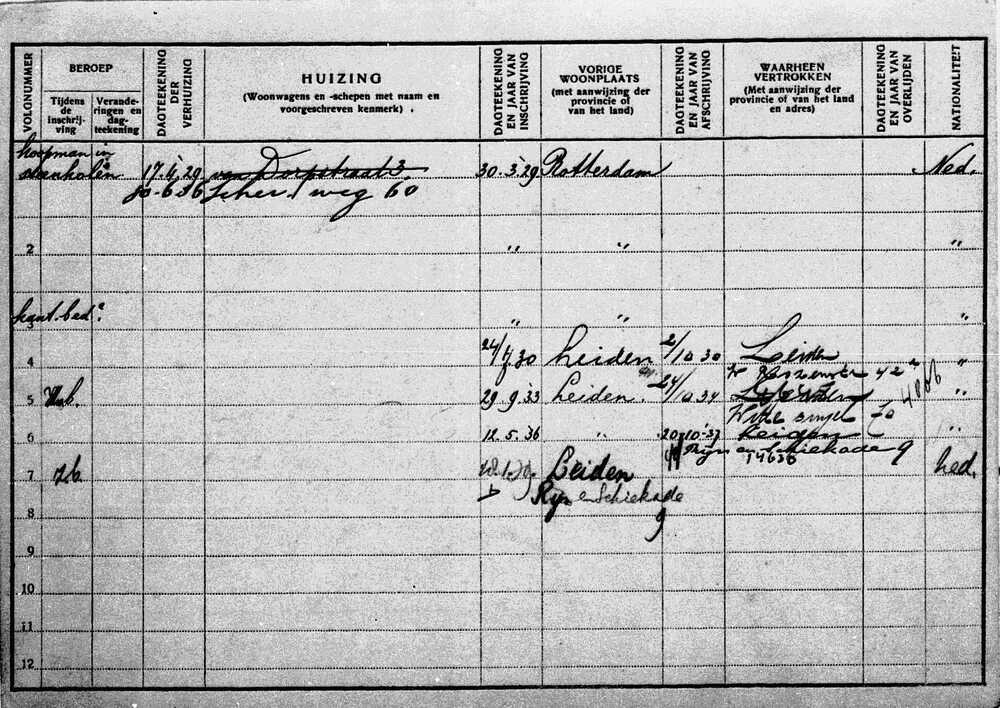 VOLGNUMMER
BEROEP
Tijdens de inschrij- ving
Verande- ringen en dag- teekening
DAGTEEKENING DER VERHUIZING
HUIZING
(Woonwagens en -schepen met naam en
voorgeschreven kenmerk)
DAGTEEKENING EN JAAR VAN INSCHRIJVING
VORIGE
WOONPLAATS
(met aanwijzing der
provincie of
van het land)
DAGTEEKENING EN JAAR VAN AFSCHRIJVING
WAARHEEN
VERTROKKEN
(Met aanwijzing der
provincie of van het land
en adres)
DAGTEEKENING EN JAAR VAN OVERLIJDEN
NATIONALITEIT
koopman in
steenkolen 17.4.29 van Dorpstraat 3 30.3.29 Rotterdam Ned.
10.6.36 weg 60
2 " " "
kant. bed.e
3 " " "
4 24/7 30 Leiden 2/10 30 Leiden "
42a
5 29.9.33 Leiden. 24/10 34 Leiden 4866 "
Witte singel 70
6 12.5.36 " 20-10-37 Leiden "
Rijn en Schiekade 9
14636
7 z.b. Leiden Ned.
Rijn en Schiekade
8
9
9
10
11
12